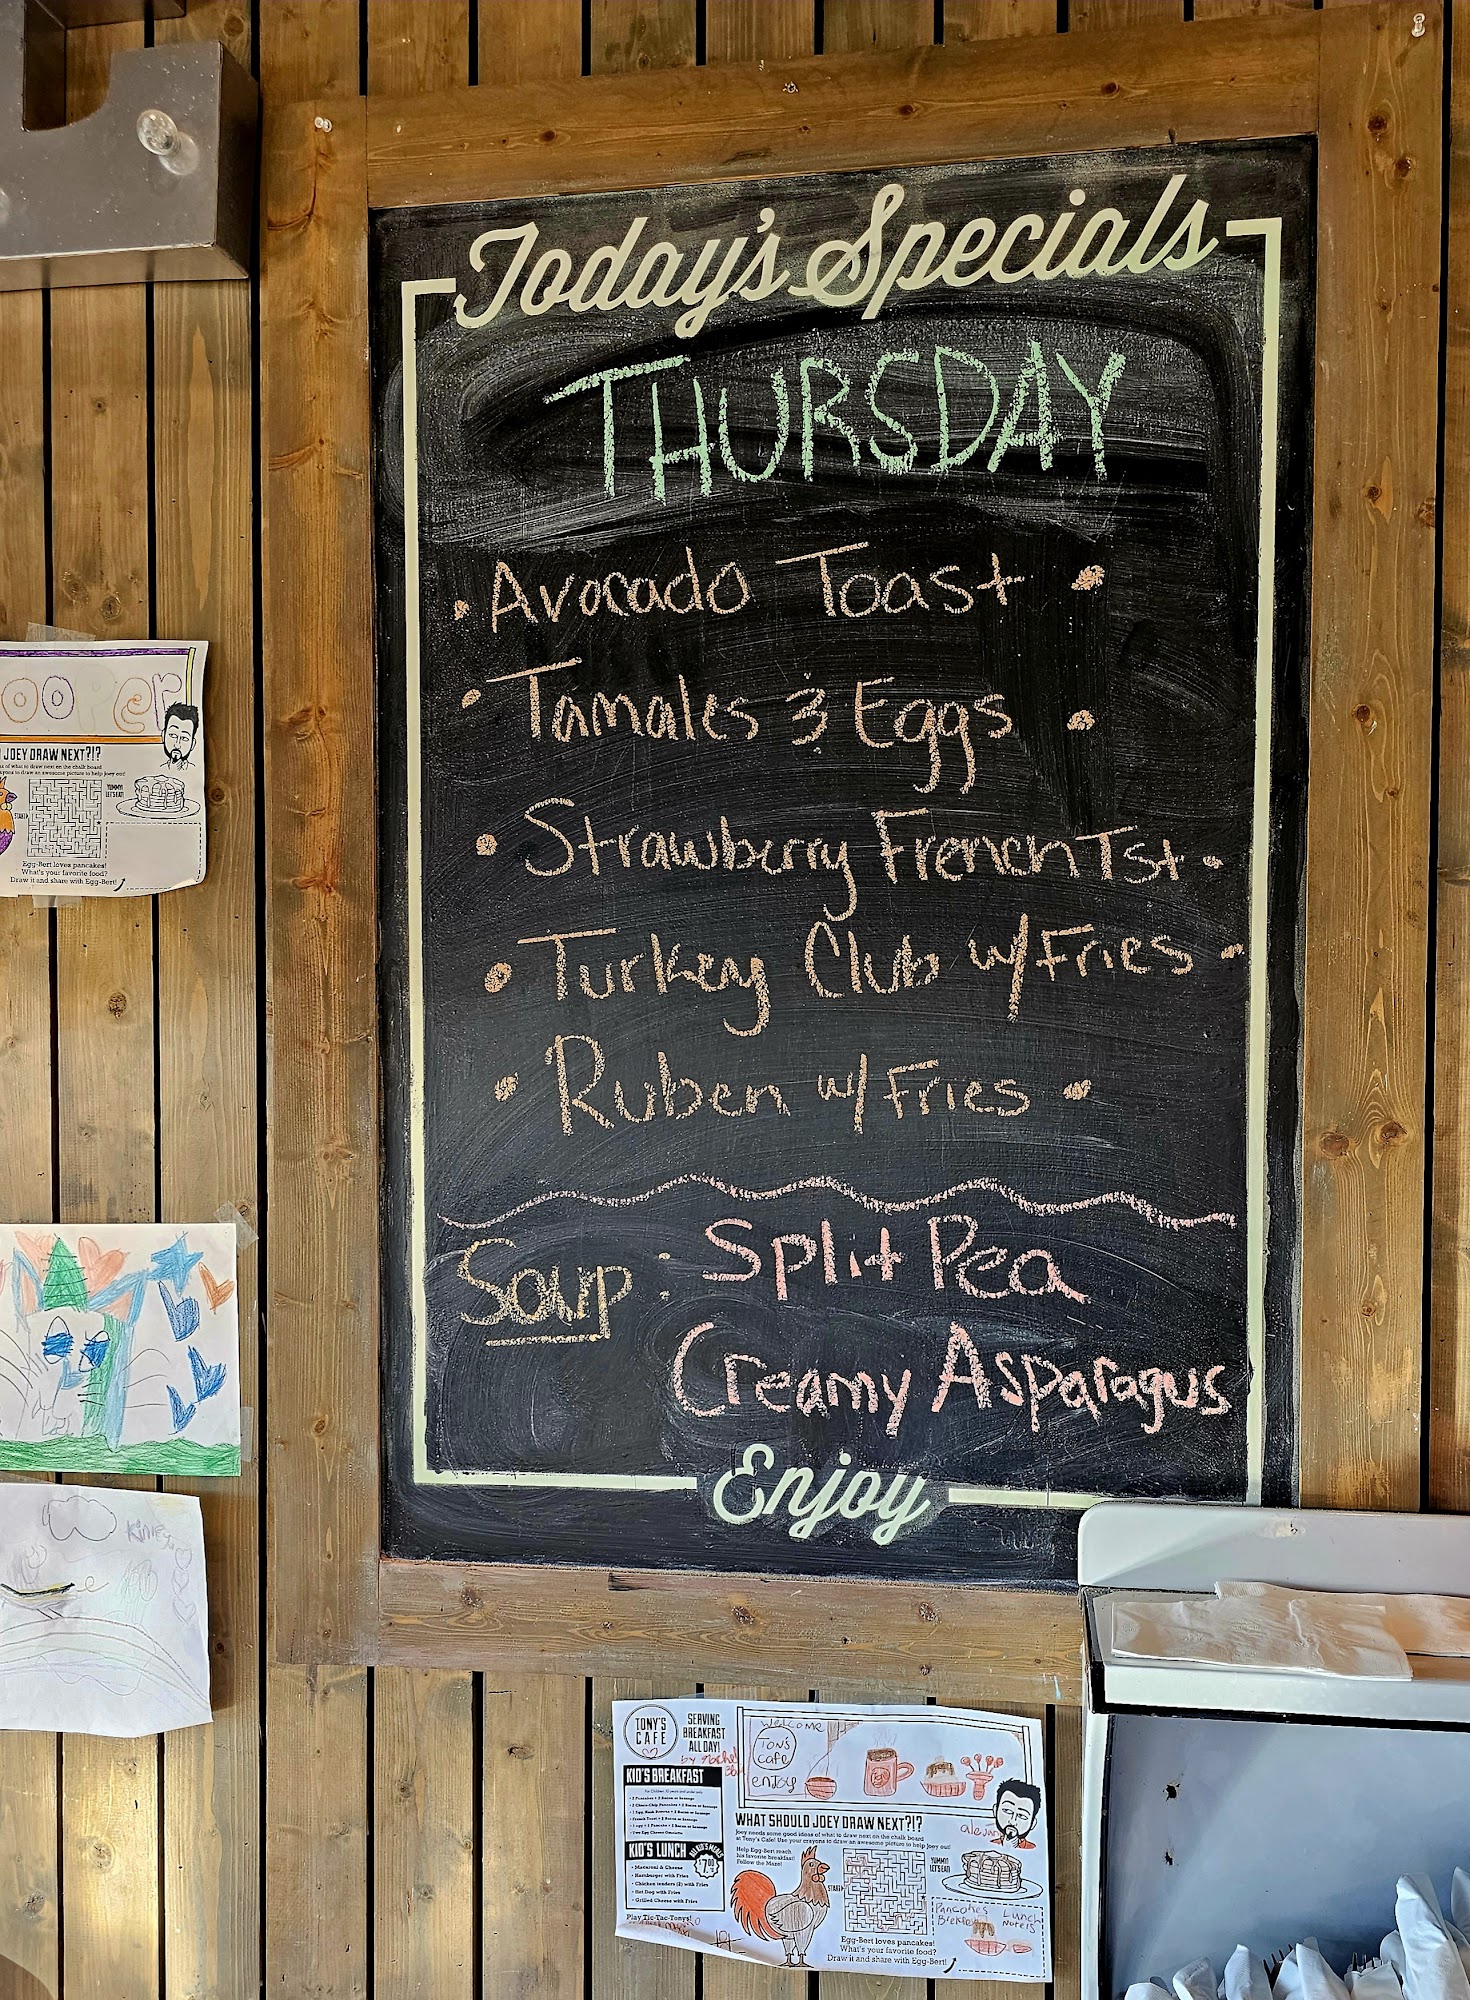 Today's Specials
THURSDAY
• Avocado Toast •
• Tamales & Eggs •
• Strawberry French Tst •
• Turkey Club w/Fries •
• Ruben w/Fries •
Soup: Split Pea
Creamy Asparagus
Enjoy
ooper
JOEY DRAW NEXT?!?
of what to draw next on the chalk board
to draw an awesome picture to help Joey out!
START
YUMMY!
LET'S EAT!
Egg-Bert loves pancakes!
What's your favorite food?
Draw it and share with Egg-Bert!
Kinley
TONY'S
CAFE
SERVING
BREAKFAST
ALL DAY!
Welcome
Ton's
Cafe
enjoy
KID'S BREAKFAST
• 2 Pancakes + 2 Bacon or Sausage
KID'S LUNCH
$7.00
• Macaroni & Cheese
• Hamburger with Fries
• Chicken tenders (2) with Fries
• Hot Dog with Fries
• Grilled Cheese with Fries
Play Tic-Tac-Tonys!
WHAT SHOULD JOEY DRAW NEXT?!?
Joey needs some good ideas of what to draw next on the chalk board
at Tony's Cafe! Use your crayons to draw an awesome picture to help Joey out!
Help Egg-Bert reach
his favorite breakfast!
Follow the Maze!
START
YUMMY!
LET'S EAT!
Egg-Bert loves pancakes!
What's your favorite food?
Draw it and share with Egg-Bert!
Pancakes
Lunch